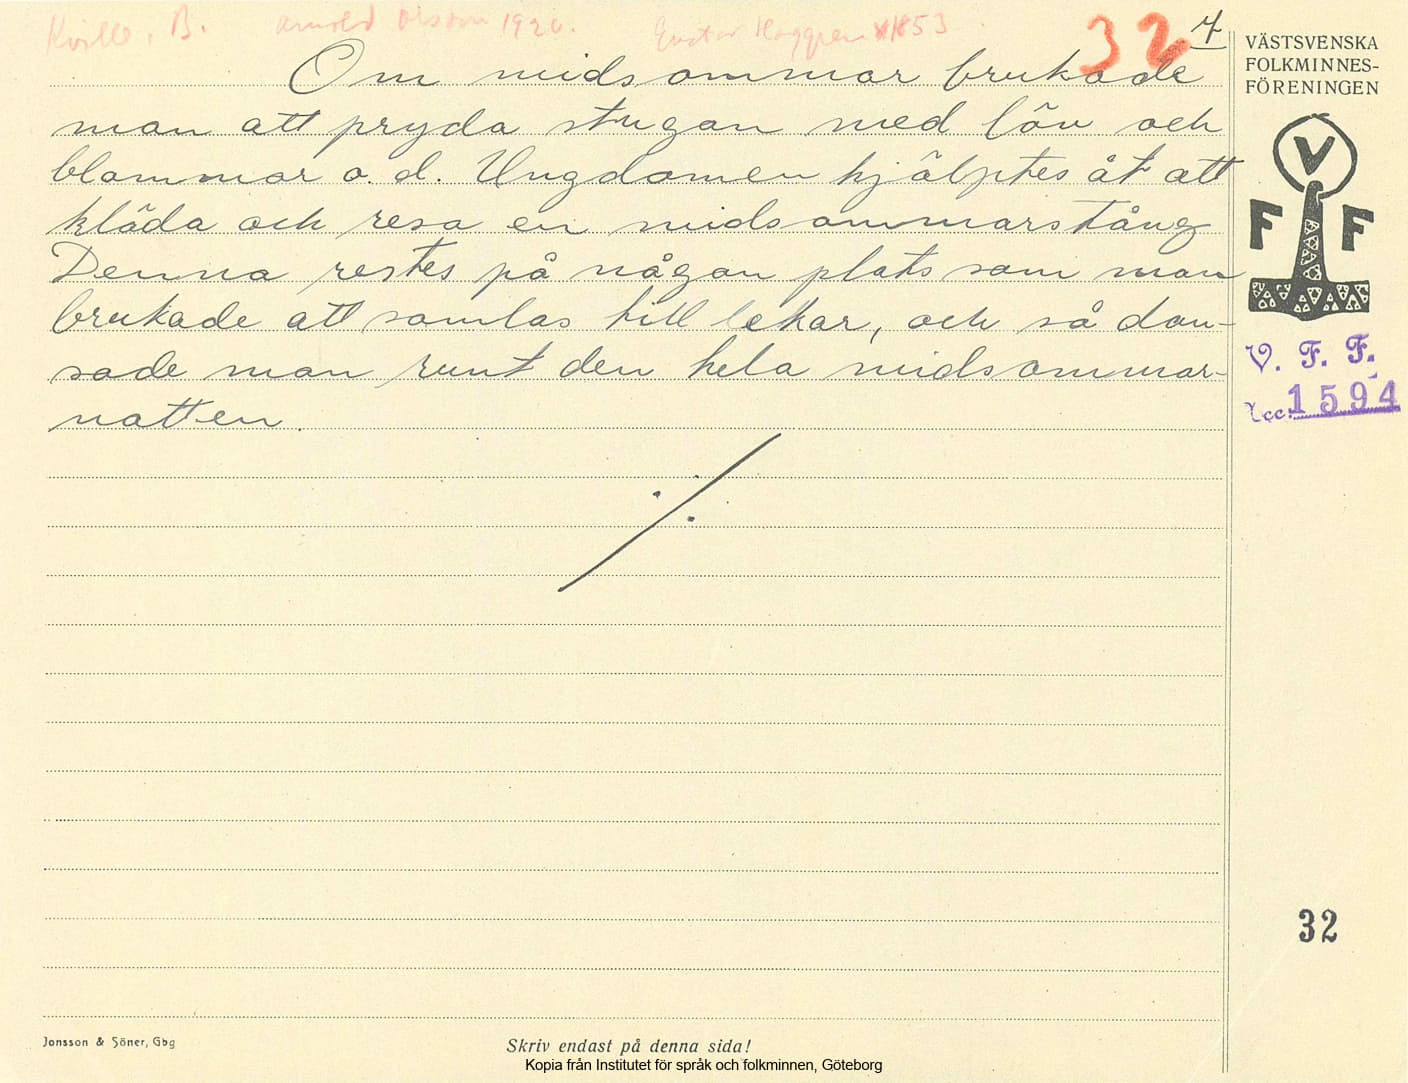 Kville, B. Arnold Olsson 1926. Gustav Haggren 1853 32 7
Om midsommar brukade
man att pryda stugan med löv och
blommor o. d. Ungdomen hjälptes åt att
kläda och resa en midsommarstång
Denna restes på någon plats som man
brukade att samlas till lekar, och så dan-
sade man runt den hela midsommar-
natten.
VÄSTSVENSKA
FOLKMINNES-
FÖRENINGEN
V
F F
V. F. F.
Acc. 1594
32
Jonsson & Söner, Gbg
Skriv endast på denna sida!
Kopia från Institutet för språk och folkminnen, Göteborg